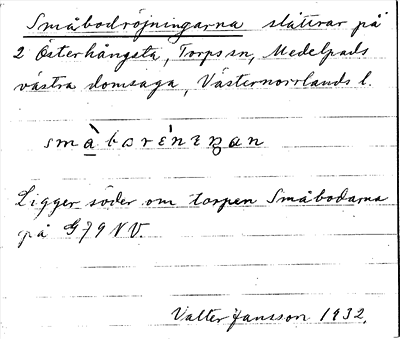 Småbodröjningarna slåttrar på
2 Österhångsta, Torps sn, Medelpads
västra domsaga, Västernorrlands l.
Ligger söder om torpen Småbodarna
på G79 NV.
Valter Jansson 1932.